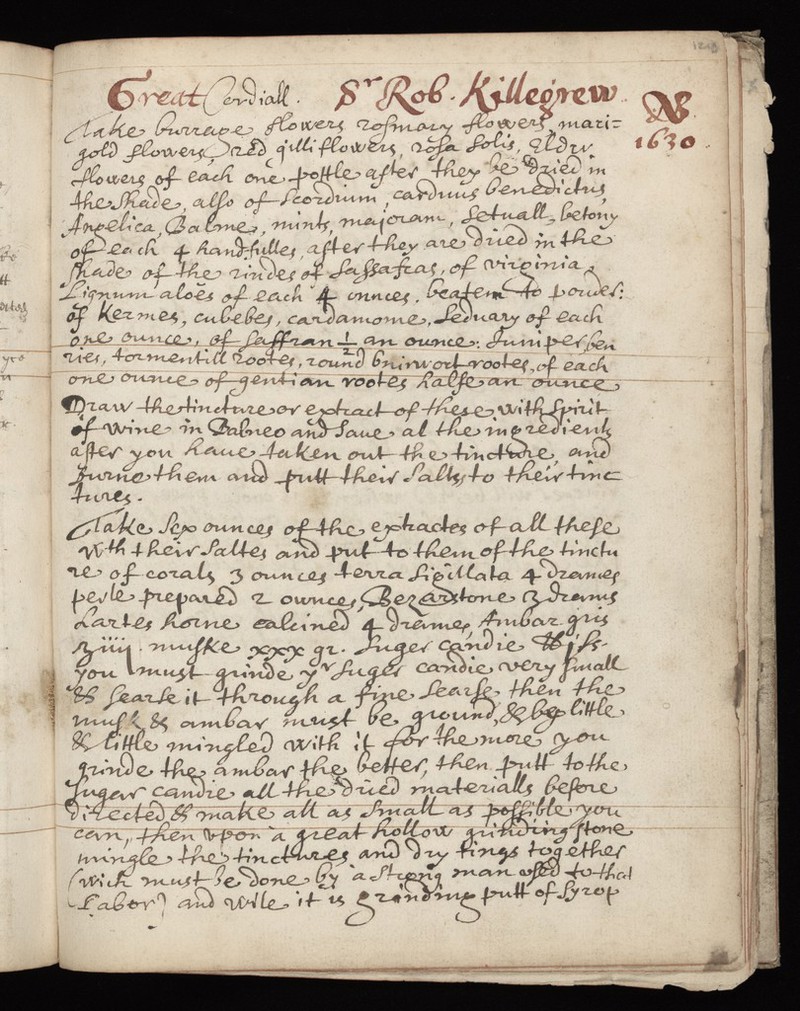 Great Cordiall. Sr Rob. Killegrew
1630.
Take burrage flowers rosmary flowers, mari=
gold flowers, red gilliflowers, rosa solis, Elder
flowers of each one pottle after they be dried in
the shade, also of scordium, carduus benedictus
Angelica, Balme, mints, majoram, setuall, betony
of each 4 handfulles, after they are dried in the
shade of the rindes of sassafras, of virginia,
Lignum aloes of each 4 ounces. beaten to pouder:
of Kermes, cubebes, cardamome, seduary of each
one ounce, of saffran 1/2 an ounce. Juniper ber
ries, tormentill rootes, round birtwort rootes, of each
one ounce of gentian rootes halfe an ounce
Draw the tincture or extract of these with spirit
of wine in Balneo and save al the ingredients
after you have taken out the tincture, and
burne them and putt their salts to their tinc
tures.
Take sex ounces of the extractes of all these
wth their saltes and put to them of the tinctu
re of corals 3 ounces terra sigillata 4 drames
perle prepared 2 ounces, Bezarstone 3 drams
hartes horne calcined 4 drames, Ambar gris
ʒiiij. muske xxx gr. suger candie
you must grinde yr suger candie very small
& searse it through a fine searse then the
musk & ambar must be ground, & by little
& little mingled with it for the more you
grinde the ambar the better, then putt to the
sugar candie all the dried materialls before
directed & make all as small as possible you
can, then upon a great hollow grinding stone
mingle the tinctures and dry tings together
(wich must be done by a strong man used to that
Labor) and wile it is grinding putt of syrop